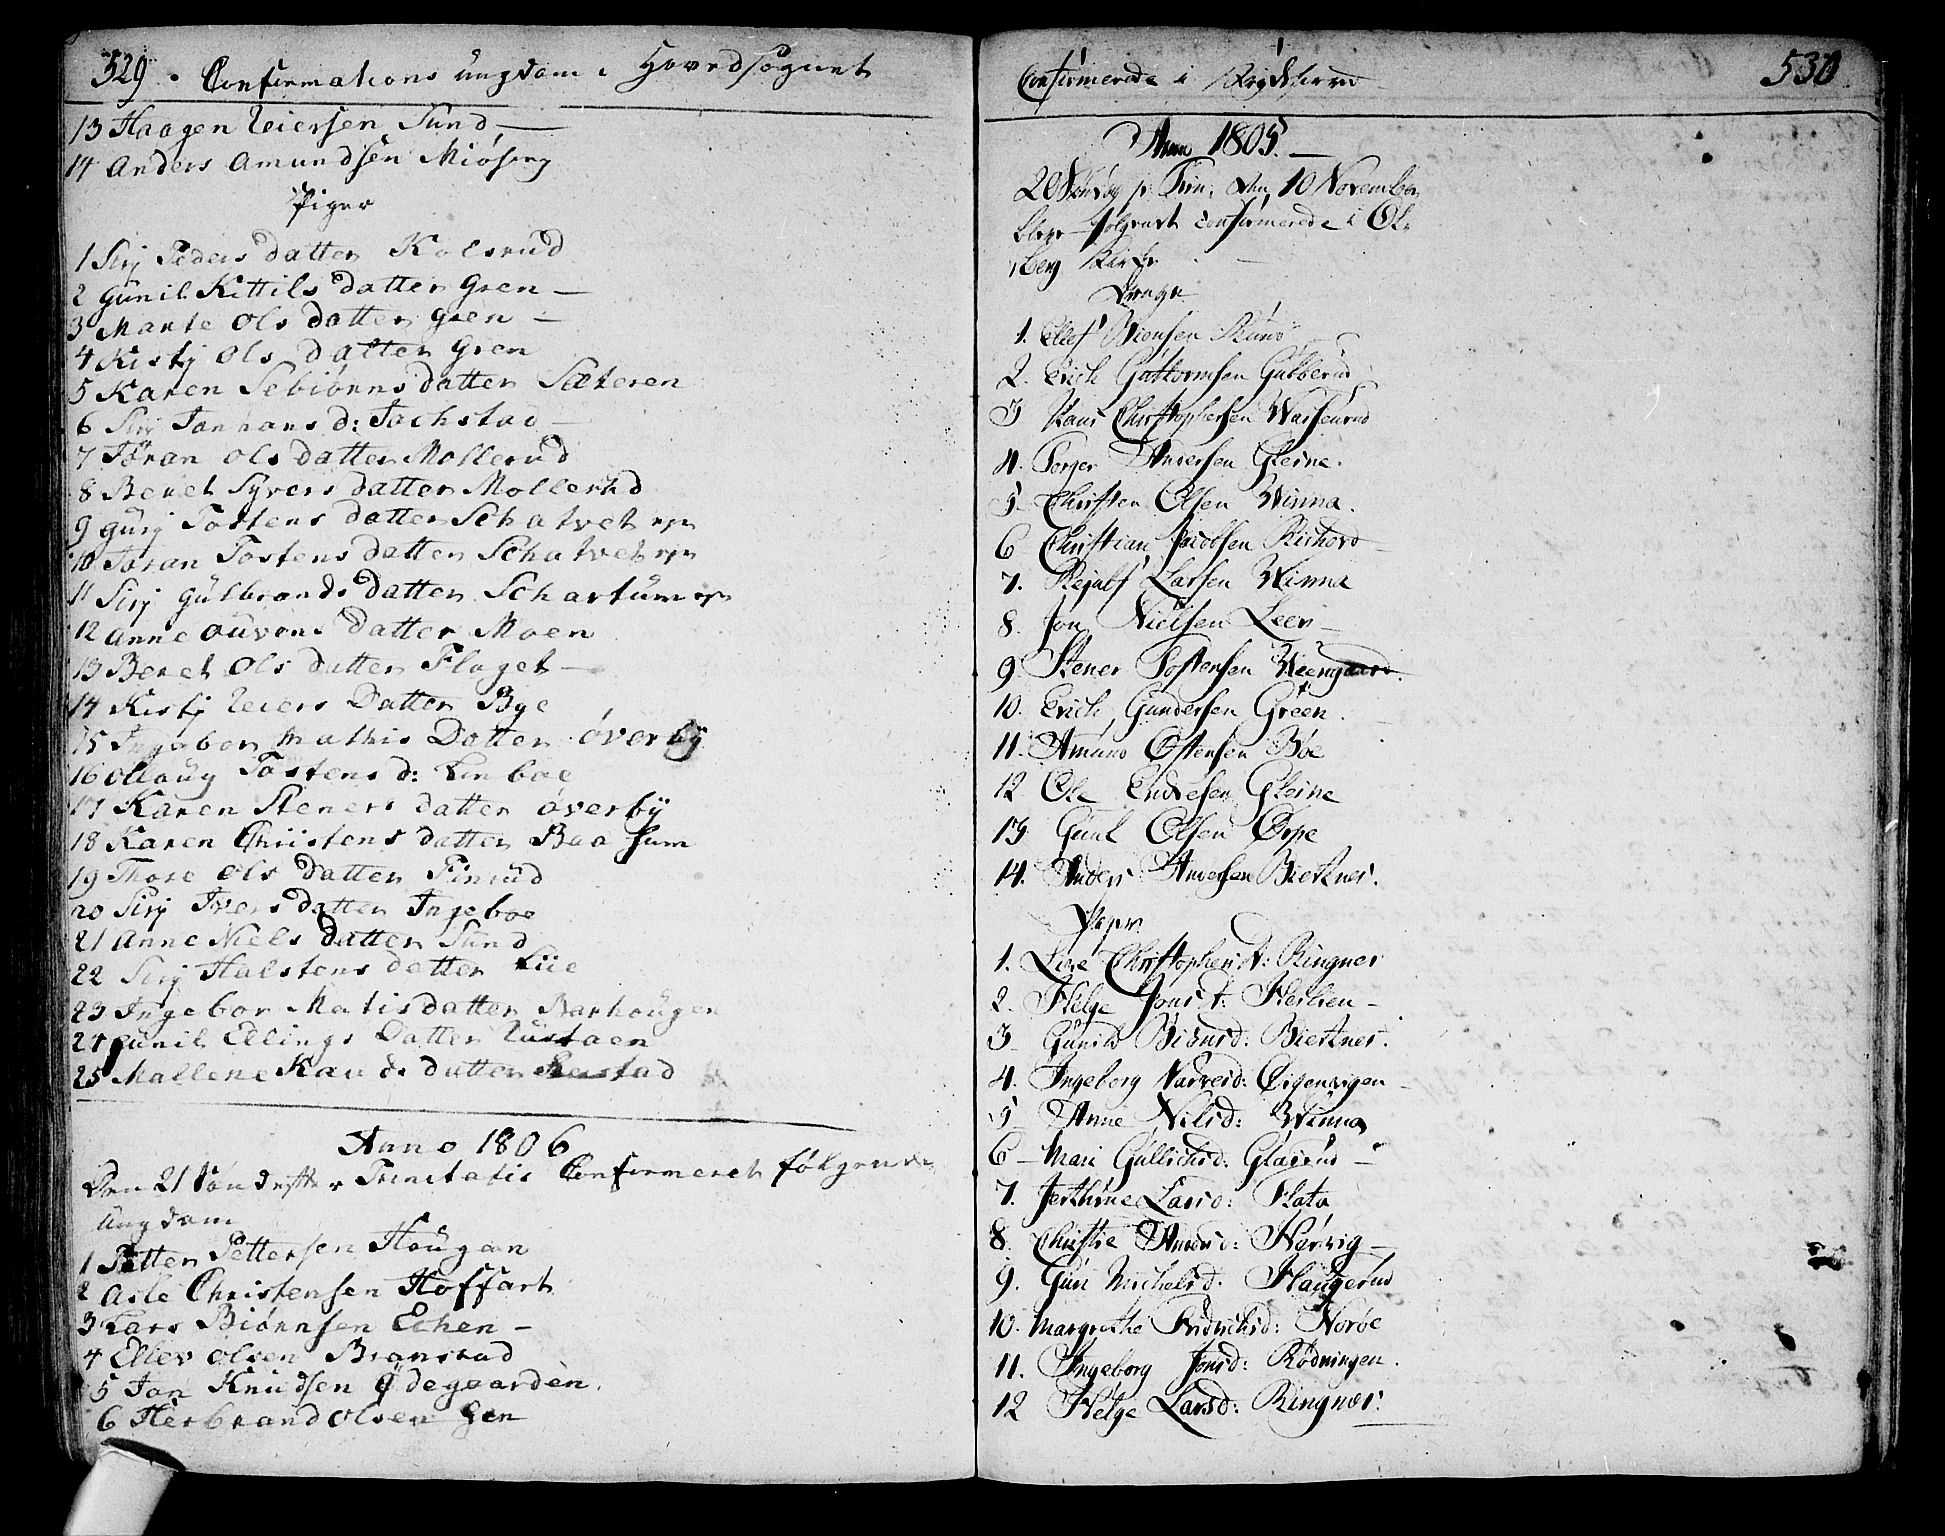 529. Confirmations ungdom i Hovedsognet
13 Haagen Reiersen Sund
14 Anders Amundsen Miøseng
Piger
1 Siri Pedersdatter Kolsrud
2 Gunil Kittils datter Gren
3 Marte Ols datter Gren
4 Kistj Ols datter Gren
5 Karen Sebiørnsdatter Sæteren
6 Sirj Johans d:
7 Jøran Olsdatter Mollerud
8 Beret Syvers datter Mollerud
9 Gurj Tostens datter Schatvet
10 Joran Tostens datter Schatvet
11 Sirj Gulbrands datter Schartum
12 Anne Ouvens datter Moen
13 Beret Ols datter Flaget
14 Kistj Reiers Datter Bye
15 Ingebor Mathis Datter øverby
16 Ollaug Tostens d:
17 Karen Steners datter øverby
18 Karen Christens datter Baasum
19 Thore Ols Datter Finrud
20 Sirj Ivers datter Ingeboe
21 Anne Niels datter Sund
22 Sirj Halstens datter Liie
23 Ingebor Matisdatter Narhougen
24 Gunil Ellings Datter Rustaen
25 Mallene Knudsdatter
Anno 1806
Den 21 Søndag efter Trinitatis Confirmeret følgende
Ungdom
1 Petter Pettersen Hougan
2 Asle Christensen Hoffart
3 Lars Biørnsen Echen
4 Ellev Olsen Bransrud
5 Jon Knudsen Ødegaarden.
6 Herbrand Olsen Gren
Confirmerede i Krydsherred 530
Anno 1805.
20 Søndag p. Trin: den 10 November
bleve følgende confirmerede i Ol-
berg Kirke
Drenge
1. Ellef Biønsen Skina
2. Erich Guttormsen Gulberud
3 Hans Christophersen Wassenrud
4. Torger Andersen Gleine.
5. Christen Olsen Winna.
6 Christian Jacobsen
7. Rejulf Larsen Winna
8. Jon Nielsen Leer
9. Stener Tostensen Weengaard.
10. Erich Gundersen Green.
11. Amund Østensen Bøe
12 Ole Endresen Gleine
13 Guul Olsen Ørpe
14. Anders Andersen Biertnes.
Piger
1. Live Christophersd: Ringnes
2. Helge Jonsd: Herlien
3. Gunild Biørnsd: Biertnes.
4. Ingeborg Narvesd: Øigenvigen
5 Anne Nilsd: Winna
6 Mari Gullichsd: Glasrud
7. Jerthrue Larsd: Flata
8. Christie Andersd: Narvig
9. Guri Michelsd: Haugerud
10. Margrethe Fridrichsd: Norøe
11. Ingeborg Jonsd: Rødningen.
12 Helge Larsd: Ringnes.